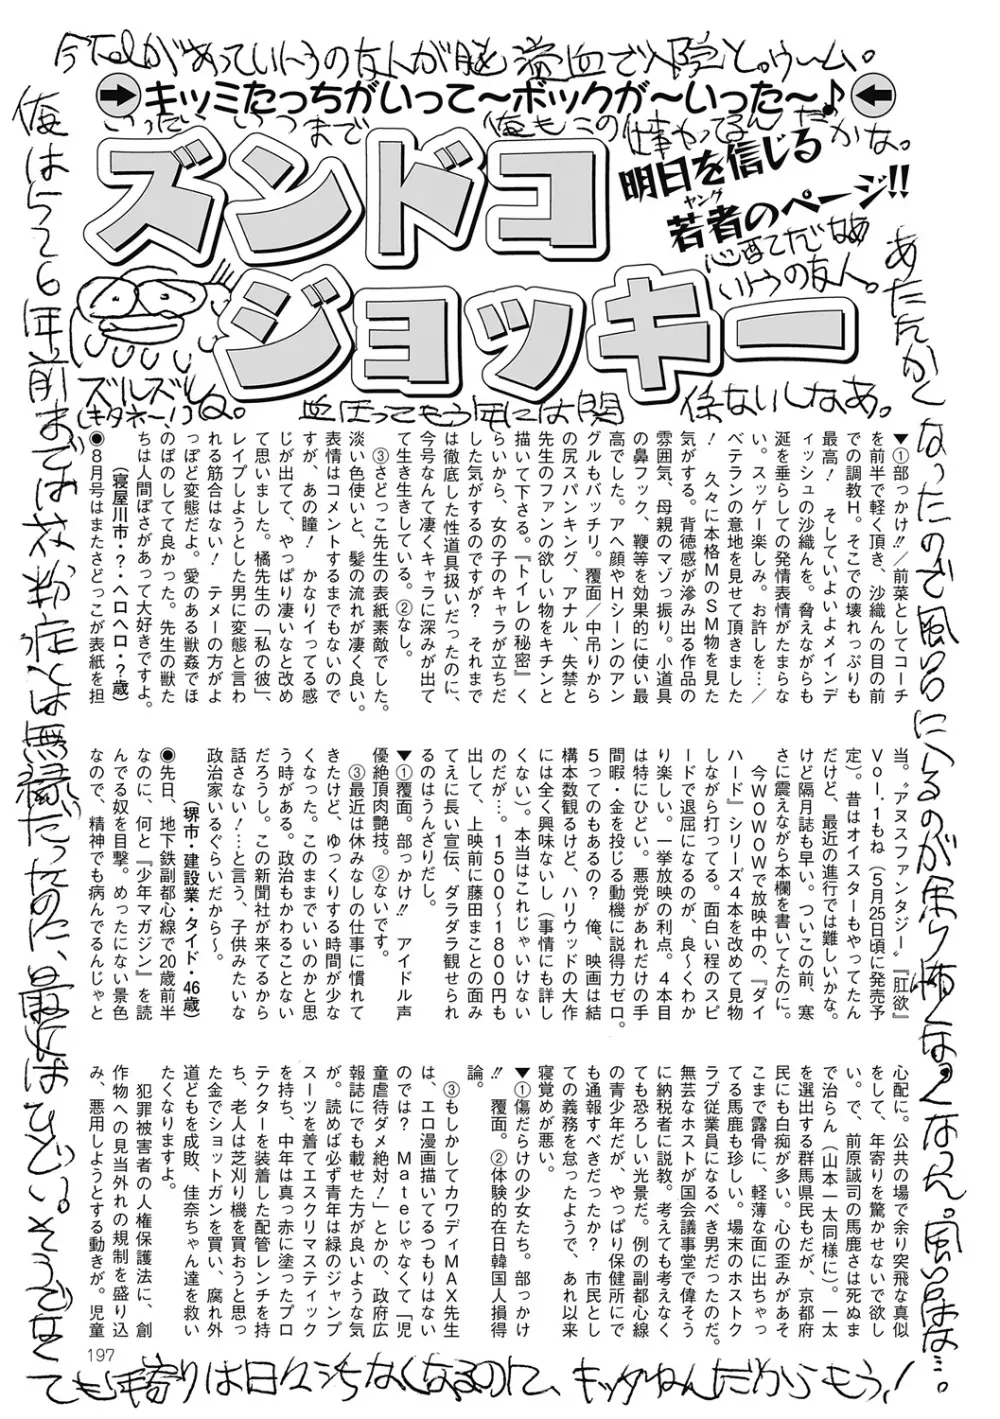 キッミたっちがいって〜ボックが〜いった〜♪
ズンドコ
ジョッキー
明日を信じる
若者のページ!!
ヤング
▼①部っかけ!!／前菜としてコーチ
を前半で軽く頂き、沙織んの目の前
での調教H。そこでの壊れっぷりも
最高！　そしていよいよメインデ
ィッシュの沙織んを。脅えながらも
涎を垂らしての発情表情がたまらな
い。スッゲー楽しみ。お許しを…／
ベテランの意地を見せて頂きました
！　久々に本格MのSM物を見た
気がする。背徳感が滲み出る作品の
雰囲気、母親のマゾっ振り。小道具
の鼻フック、鞭等を効果的に使い最
高でした。アヘ顔やHシーンのアン
グルもバッチリ。覆面／中吊りから
の尻スパンキング、アナル、失禁と
先生のファンの欲しい物をキチンと
描いて下さる。『トイレの秘密』く
らいから、女の子のキャラが立ちだ
した気がするのですが？　それまで
は徹底した性道具扱いだったのに、
今号なんて凄くキャラに深みが出て
て生き生きしている。②なし。
③さどっこ先生の表紙素敵でした。
淡い色使いと、髪の流れが凄く良い。
表情はコメントするまでもないので
すが、あの瞳！　かなりイってる感
じが出てて、やっぱり凄いなと改め
て思いました。橘先生の「私の彼」、
レイプしようとした男に変態と言わ
れる筋合はない！　テメーの方がよ
っぽど変態だよ。愛のある獣姦でほ
のぼのしてて良かった。先生の獣た
ちは人間ぽさがあって大好きですよ。
（寝屋川市・？・ヘロヘロ・？歳）
◉8月号はまたさどっこが表紙を担
当。〝アヌスファンタジー〟『肛欲』
Vol.1もね（5月25日頃に発売予
定）。昔はオイスターもやってたん
だけど、最近の進行では難しいかな。
けど隔月誌も早い。ついこの前、寒
さに震えながら本欄を書いてたのに。
今WOWOWで放映中の、『ダイ
ハード』シリーズ4本を改めて見物
しながら打ってる。面白い程のスピ
ードで退屈になるのが、良〜くわか
り楽しい。一挙放映の利点。4本目
は特にひどい。悪党があれだけの手
間暇・金を投じる動機に説得力ゼロ。
5ってのもあるの？　俺、映画は結
構本数観るけど、ハリウッドの大作
には全く興味ないし（事情にも詳し
くない）。本当はこれじゃいけない
のだが…。1500〜1800円も
出して、上映前に藤田まことの面み
てえに長い宣伝、ダラダラ観せられ
るのはうんざりだし。
▼①覆面。部っかけ!!　アイドル声
優絶頂肉艶技。②ないです。
③最近は休みなしの仕事に慣れて
きたけど、ゆっくりする時間が少な
くなった。このままでいいのかと思
う時がある。政治もかわることない
だろうし。この新聞社が来てるから
話さない！…と言う、子供みたいな
政治家いるぐらいだから〜。
（堺市・建設業・タイド・46歳）
◉先日、地下鉄副都心線で20歳前半
なのに、何と『少年マガジン』を読
んでる奴を目撃。めったにない景色
なので、精神でも病んでるんじゃと
心配に。公共の場で余り突飛な真似
をして、年寄りを驚かせないで欲し
い。で、前原誠司の馬鹿さは死ぬま
で治らん（山本一太同様に）。一太
を選出する群馬県民もだが、京都府
民にも白痴が多い。心の歪みがあそ
こまで露骨に、軽薄な面に出ちゃっ
てる馬鹿も珍しい。場末のホストク
ラブ従業員になるべき男だったのだ。
無芸なホストが国会議事堂で偉そう
に納税者に説教。考えても考えなく
ても恐ろしい光景だ。例の副都心線
の青少年だが、やっぱり保健所にで
も通報すべきだったか？　市民とし
ての義務を怠ったようで、あれ以来
寝覚めが悪い。
▼①傷だらけの少女たち。部っかけ
!!　覆面。②体験的在日韓国人損得
論。
③もしかしてカワディMAX先生
は、エロ漫画描いてるつもりはない
のでは？　Mateじゃなくて「児
童虐待ダメ絶対！」とかの、政府広
報誌にでも載せた方が良いような気
が。読めば必ず青年は緑のジャンプ
スーツを着てエスクリマスティック
を持ち、中年は真っ赤に塗ったプロ
テクターを装着した配管レンチを持
ち、老人は芝刈り機を買おうと思っ
た金でショットガンを買い、腐れ外
道どもを成敗、佳奈ちゃん達を救い
たくなりますよ。
犯罪被害者の人権保護法に、創
作物への見当外れの規制を盛り込
み、悪用しようとする動きが。児童
197
俺は5,6年前までは花粉症とは無縁だったのに、最近はひどい。そうでなく
ても年寄りは日々うちなくなるのに、
あたたかくなったので風呂に入るのが余り怖くなくなった。風呂はな…。
血圧ってもう年には関係ないしなあ。
ズルズルしな。
（キタネー!）